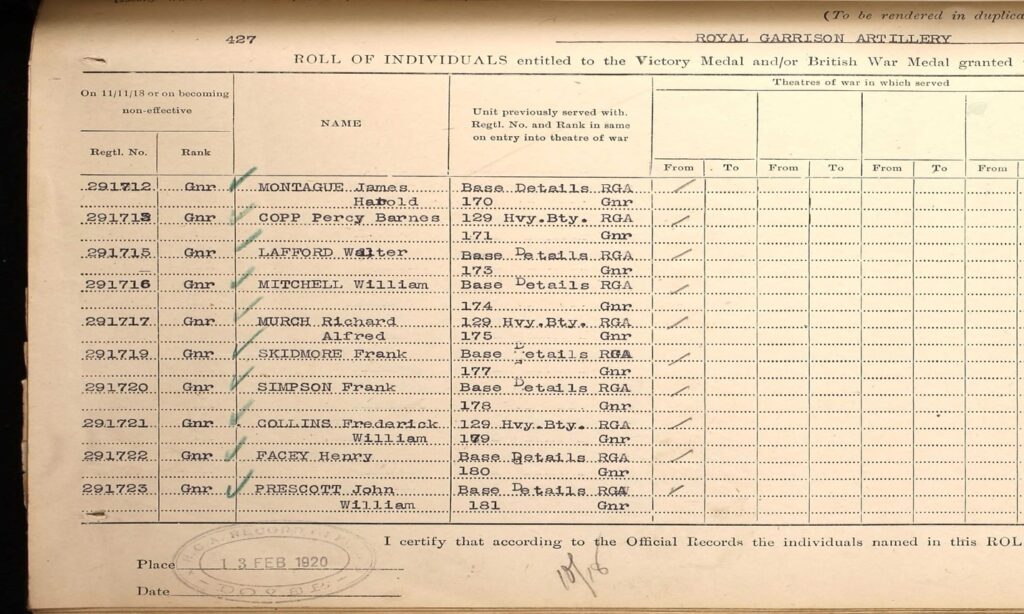 (To be rendered in duplica
427
ROYAL GARRISON ARTILLERY
ROLL OF INDIVIDUALS entitled to the Victory Medal and/or British War Medal granted
On 11/11/18 or on becoming non-effective
NAME
Unit previously served with. Regtl. No. and Rank in same on entry into theatre of war
Theatres of war in which served
Regtl. No. Rank From To From To From To From
291712 Gnr MONTAGUE James Base Details RGA
Harold 170 Gnr
291713 Gnr COPP Percy Barnes 129 Hvy.Bty. RGA
171 Gnr
291715 Gnr LAFFORD Walter Base Details RGA
173 Gnr
291716 Gnr MITCHELL William Base Details RGA
174 Gnr
291717 Gnr MURCH Richard 129 Hvy.Bty. RGA
Alfred 175 Gnr
291719 Gnr SKIDMORE Frank Base Details RGA
177 Gnr
291720 Gnr SIMPSON Frank Base Details RGA
178 Gnr
291721 Gnr COLLINS Frederick 129 Hvy.Bty. RGA
William 179 Gnr
291722 Gnr FACEY Henry Base Details RGA
180 Gnr
291723 Gnr PRESCOTT John Base Details RGA
William 181 Gnr
I certify that according to the Official Records the individuals named in this ROL
Place
13 FEB 1920
Date